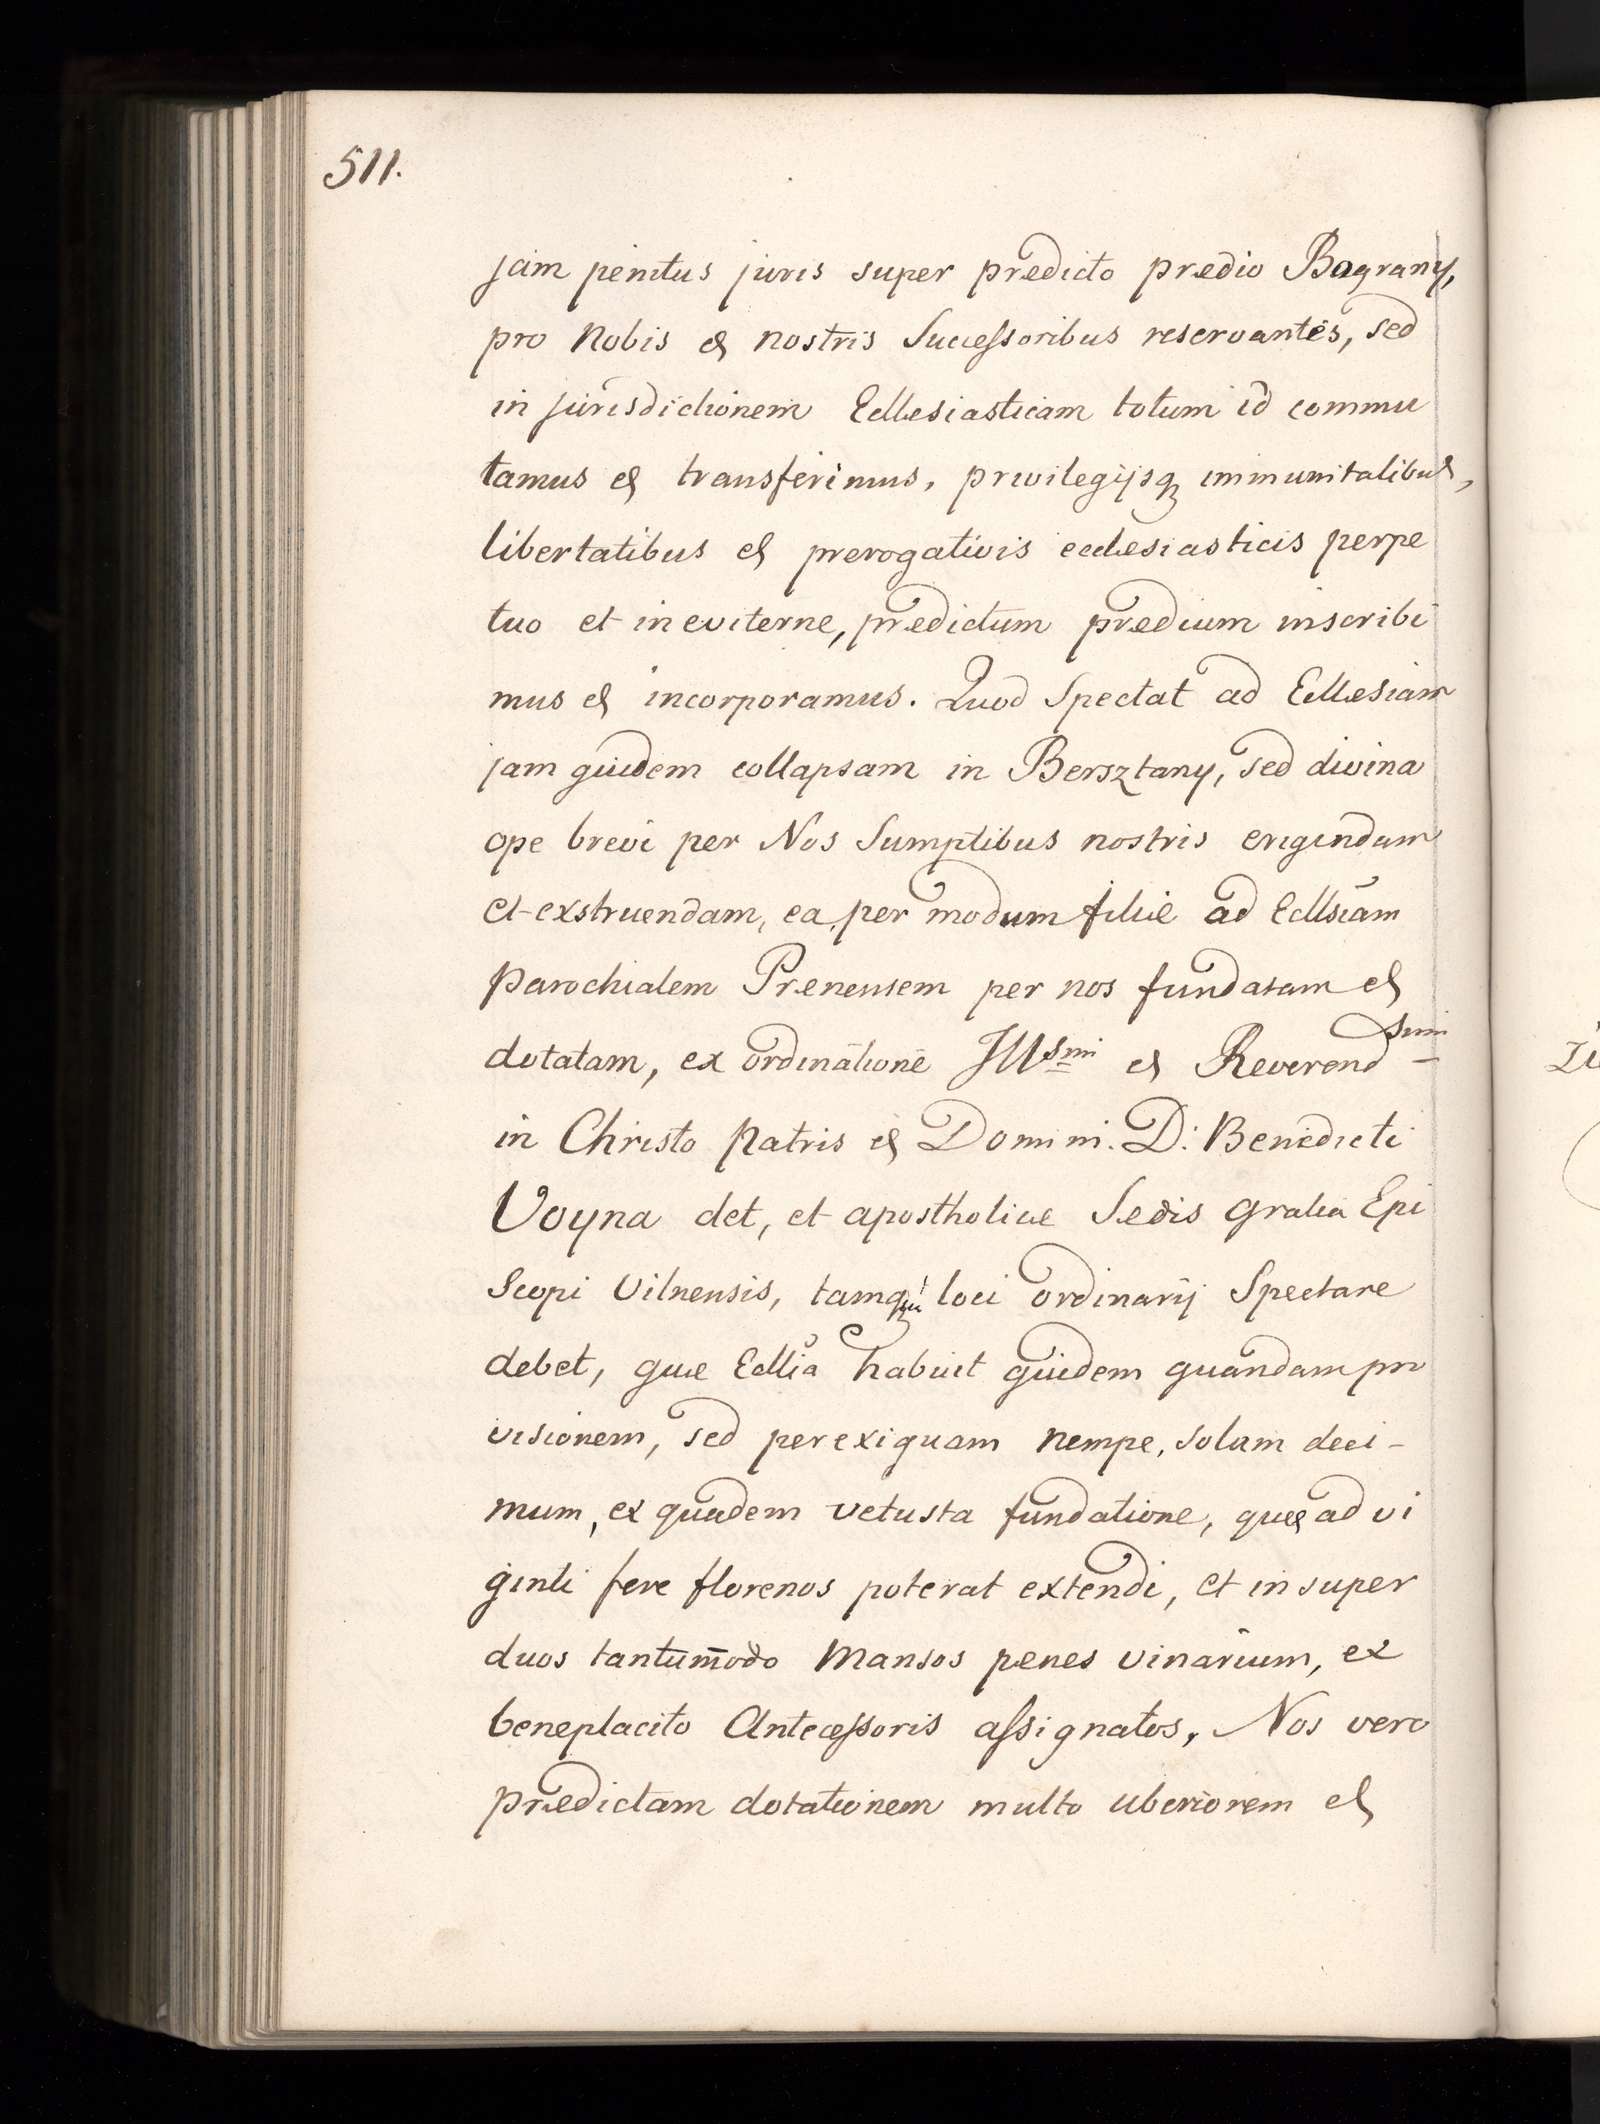 511.
jam penitus juris super prædicto prædio Bagrany,
pro Nobis et nostris Sucessoribus reservantes, sed
in jurisdictionem Ecllesiasticam totum id commu
tamus et transferimus, privilegijsq immunitatibus,
libertatibus et prerogativis ecclesiasticis perpe
tuo et in eviterne, prædictum prædium inscribi
mus et incorporamus. Quod Spectat ad Ecllesiam
jam quidem collapsam in Bersztany, sed divina
ope brevi per Nos Sumptibus nostris erigendam
et exstruendam, ea per modum filiæ ad Ecllsiam
parochialem Prenensem per nos fundatam et
dotatam, ex ordinatione Illsmi et Reverendsimi
in Christo Patris et Domini. D: Benedicti
Voyna dei, et apostholicæ Sedis gratia Epi
Scopi Vilnensis, loci ordinarij Spectare
debet, quæ Ecllia habuit quidem quandam pro
visionem, sed perexiguam nempe, solam deci-
mum, ex quadem vetusta fundatione, quæ ad vi
ginti fere florenos poterat extendi, et in super
duos tantummodo Mansos penes vinarium, ex
beneplacito Antecessoris assignatos, Nos vero
prædictam dotationem multo uberiorem et